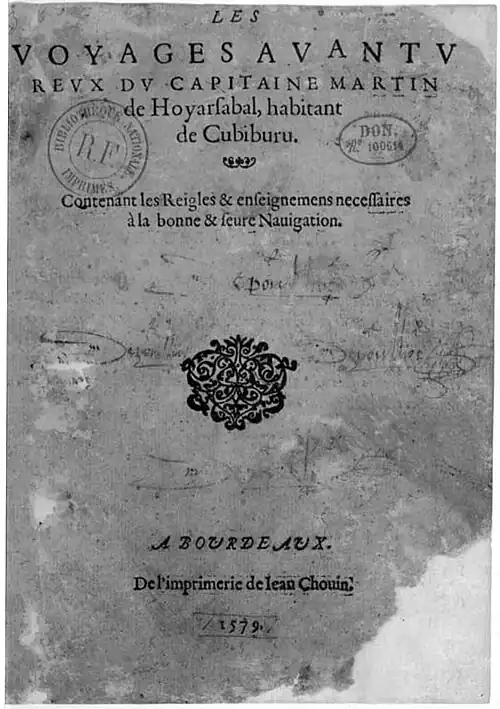 LES
VOYAGES AVANTV
REVX DV CAPITAINE MARTIN
de Hoyarſabal, habitant
de Cubiburu.
BIBLIOTHEQUE NATIONALE
R.F
IMPRIMÉS
DON.
100614
Contenant les Reigles & enſeignemens neceſſaires
à la bonne & ſeure Nauigation.
A BOURDEAUX.
De l'imprimerie de Iean Chouin.
1579.